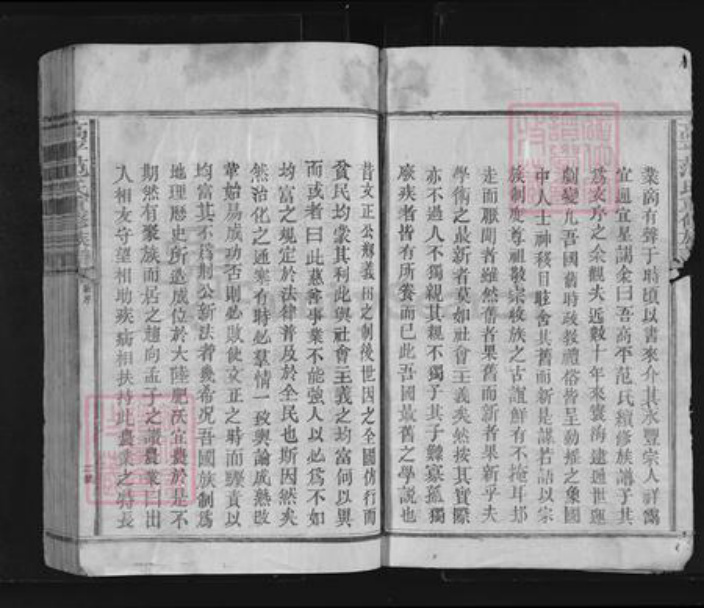 業商有聲于時頃以書來介其永豐宗人祥
宜通宜星謁余曰吾高平范氏續修族譜子其
為之序之余觀夫近數十年來寰海遠通世
劇變凡吾國舊時政教禮俗皆呈動搖之象國
中人士神移目眩舍其舊而新是謀若語以宗
族制度尊祖敬宗收族之古誼鮮有不掩耳
走而聽聞者雖然舊者果舊而新者果新乎夫
學術之最新者莫如社會主義矣然按其實際
亦不過人不獨親其親不獨子其子鰥寡孤獨
廢疾者皆有所養而已此吾國最舊之學說也
昔文正公辦義田之制後世因之全國仿行而
貧民均蒙其利此與社會主義之均富何以異
而或者曰此慈善事業不能強人以必為不如
均富之規定於法律普及於全民也斯因然矣
然治化之通塞有時必羣情一致輿論成熟改
革始易成功否則必敗使文正之時而驟責以
均富其不為荊公新法者幾希况吾國族制為
地理歷史所造成位於大陸肥沃宜農於是不
期然有聚族而居之趨向孟子之讚農業曰出
入相友守望相助疾病相扶持此農業之特長